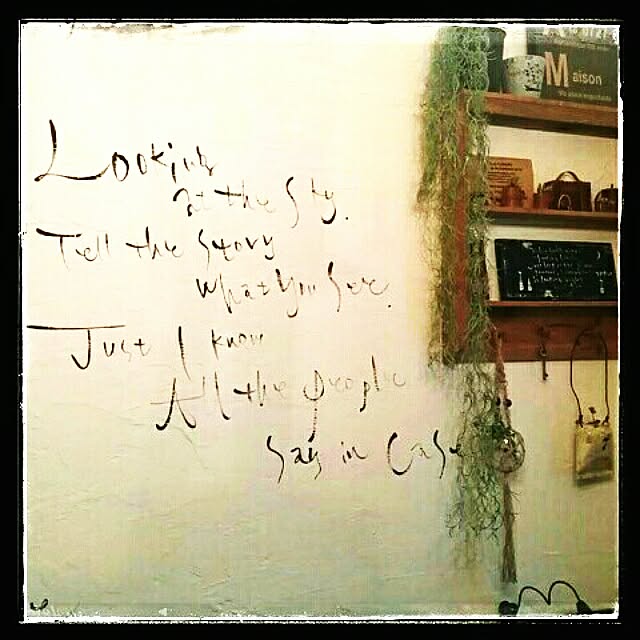 Looking
at the Sky.
Tell the Story
what you See.
Just I know
All the people
Say in Case
Maison